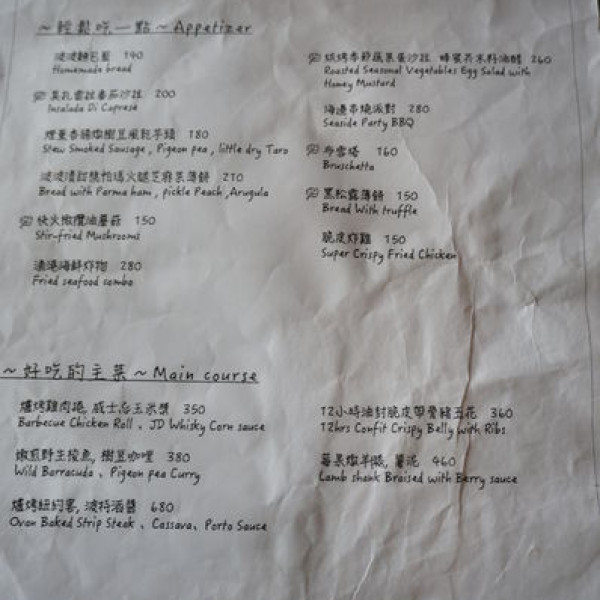 ~輕鬆吃一點~Appetizer
波波麵包籃 190
Homemade bread
莫扎雷拉番茄沙拉 200
Insalada Di Caprese
煙薰香腸燉樹豆風乾芋頭 180
Stew Smoked Sausage, Pigeon pea, little dry Taro
波波漬甜桃帕瑪火腿芝麻葉薄餅 210
Bread with Parma ham, pickle Peach, Arugula
快火橄欖油蘑菇 150
Stir-fried Mushrooms
漁港海鮮炸物 280
Fried seafood combo
烘烤季節蔬菜蛋沙拉 蜂蜜芥末籽油醋 260
Roasted Seasonal Vegetables Egg Salad with
Honey Mustard
海邊串燒派對 280
Seaside Party BBQ
布雪塔 160
Bruschetta
黑松露薄餅 150
Bread With truffle
脆皮炸雞 150
Super Crispy Fried Chicken
~好吃的主菜~Main course
爐烤雞肉捲, 威士忌玉米漿 350
Barbecue Chicken Roll、JD Whisky Corn sauce
嫩煎野生梭魚, 樹豆咖哩 380
Wild Barracuda、Pigeon pea Curry
爐烤紐約客, 波特酒醬 680
Oven Baked Strip Steak、Cassava、Porto Sauce
12小時油封脆皮帶骨豬五花 360
12hrs Confit Crispy Belly with Ribs
莓果燉羊膝, 薯泥 460
Lamb shank Braised with Berry sauce